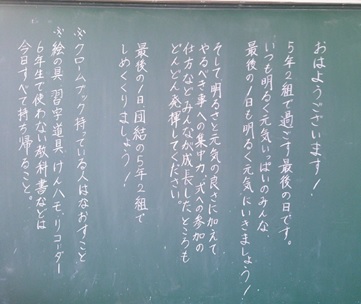 おはようございます！
５年２組で過ごす最後の日です。
いつも明るく元気いっぱいのみんな、
最後の１日も明るく元気にいきましょう！
そして明るさと元気の良さに加えて
やるべき事への集中力、式への参加の
仕方などみんなが成長したところも
どんどん発揮してください。
最後の１日団結の５年２組で
しめくくりましょう！
※クロームブック持っている人はなおすこと
※絵の具 習字道具 けんハモ、リコーダー
６年生で使わない教科書などは
今日すべて持ち帰ること。